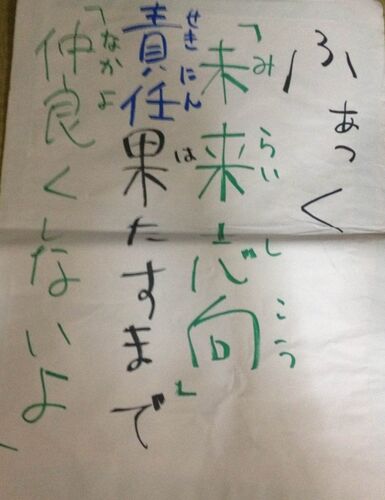 ふぁっく
「未来志向」
責任果たすまで
「仲良くしないよ